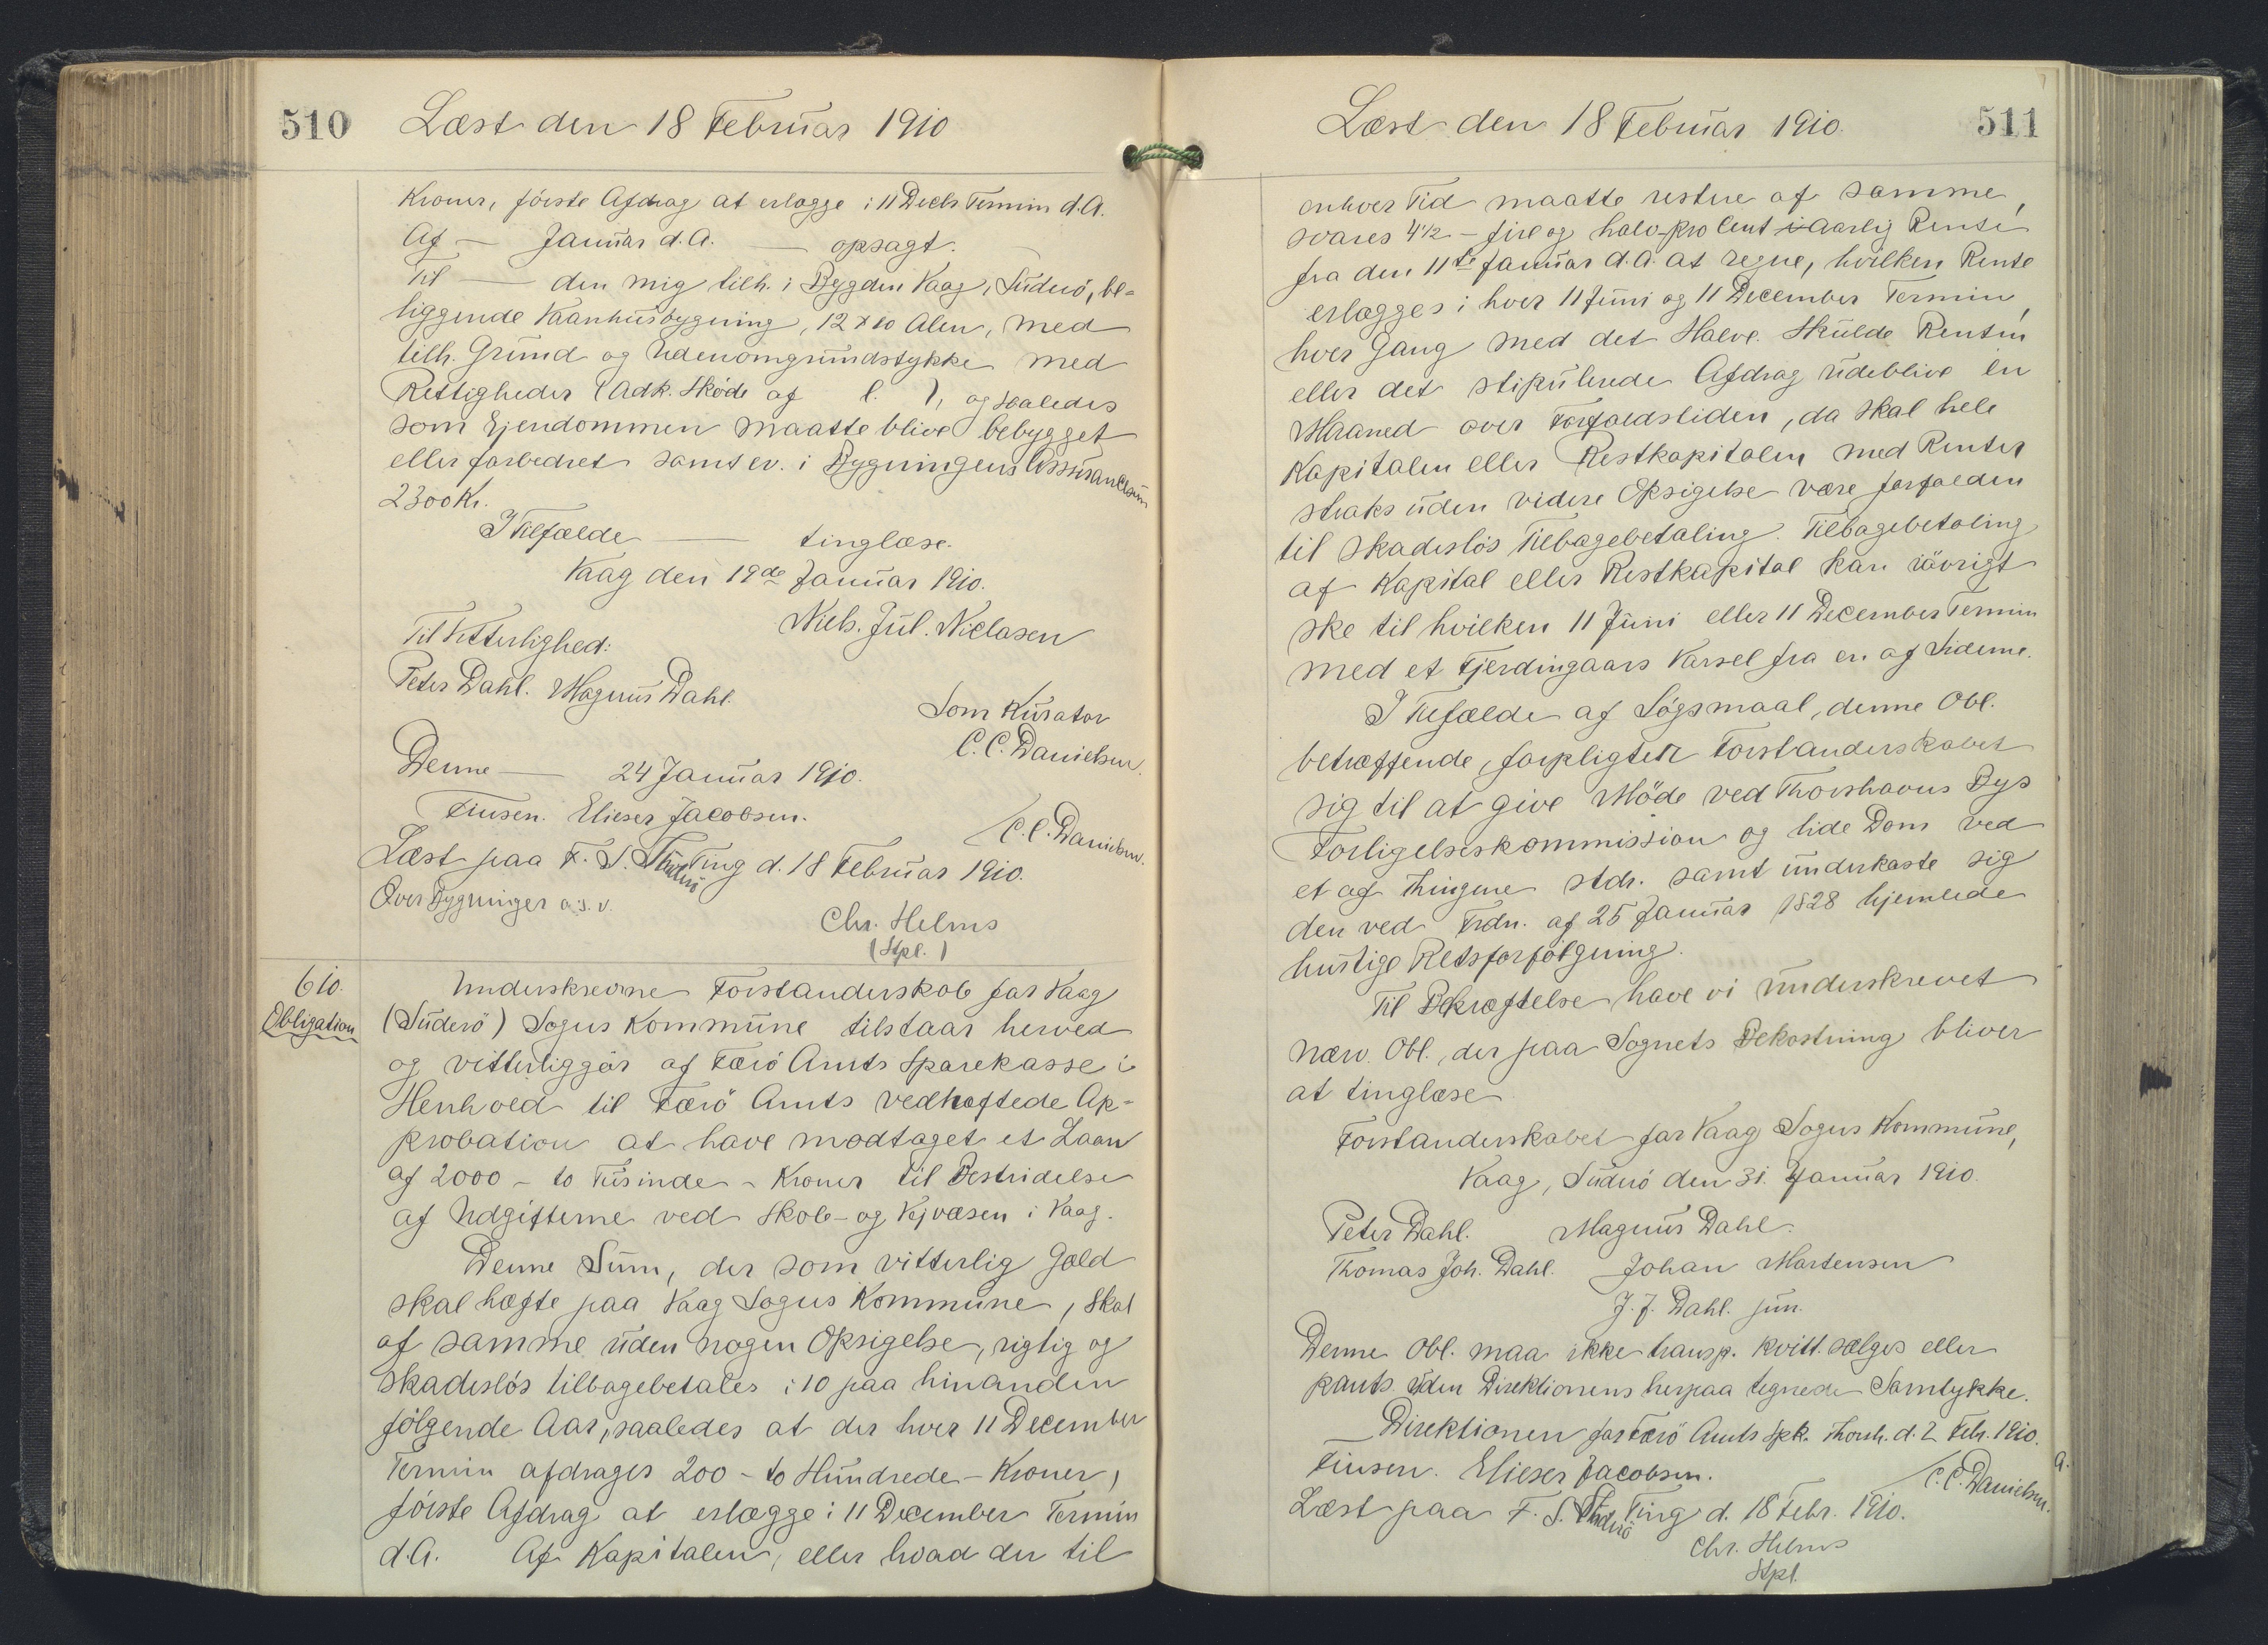 510 Læst den 18 Februar 1910
Kroner, första Afdrag at erlægge i 11 Decbr Termin d.A.
Af — Januar d.A. — opsagt.
Til — den mig tilh. i Bygden Vaag, Suderö, be-
liggende Vaanhusbygning, 12 x 10 Alen, med
tilh. Grund og Udenomgrundstykke med
Rettigheder (Adk. Sköde af l. ), og saaledes
som Ejendommen maatte blive bebygget
eller forbedret samt ev. i Bygningens Assurancesum
2300 Kr.
I Tilfælde — tinglæse.
Vaag den 19de Januar 1910.
Niels. Jul. Niclasen
Til Vitterlighed:
Peter Dahl. Magnus Dahl.
Som Kurator
C. C. Danielsen.
Denne — 24 Januar 1910.
Finsen. Elieser Jacobsen.
/C. C. Danielsen.
Læst paa F. S. Suderö Ting d. 18 Februar 1910.
Over Bygninger o.s.v.
Chr. Helms
(Stpl.)
610.
Obligation
Underskrevne Forstanderskab for Vaag
(Suderö) Sogns Kommune tilstaar herved
og vitterliggör af Færö Amts Sparekasse i
Henhold til Færö Amts vedhæftede Ap-
probation at have modtaget et Laan
af 2000 - to Tusinde - Kroner til Bestridelse
af Udgifterne ved Skole- og Vejvæsen i Vaag.
Denne Sum, der som vitterlig Gæld
skal hæfte paa Vaag Sogns Kommune, skal
af samme uden nogen Opsigelse, rigtig og
skadeslös tilbagebetales i 10 paa hinanden
fölgende Aar, saaledes at der hver 11 December
Termin afdrages 200 - to Hundrede - Kroner,
förste Afdrag at erlægge i 11 December Termin
d.A. Af Kapitalen, eller hvad der til
Læst den 18 Februar 1910. 511
enhver Tid maatte restere af samme,
svares 4½ - fire og halv - pro Cent i Aarlig Rente
fra den 11te Januar d.A. at regne, hvilken Rente
erlægges i hver 11 Juni og 11 December Termin,
hver Gang med det Halve. Skulde Renten
eller det stipulerede Afdrag udeblive en
Maaned over Forfaldstiden, da skal hele
Kapitalen eller Restkapitalen med Renter
straks uden videre Opsigelse være forfalden
til skadeslös Tilbagebetaling. Tilbagebetaling
af Kapital eller Restkapital kan iövrigt
ske til hvilken 11 Juni eller 11 December Termin
med et Fjerdingaars Varsel fra en af Siderne.
I Tilfælde af Sögsmaal, denne Obl.
betræffende, forpligter Forstanderskabet
sig til at give Möde ved Thorshavns Bys
Forligelseskommission og lide Dom ved
et af Thingene stdr. samt underkaste sig
den ved Frdn. af 25 Januar 1828 hjemlede
hurtige Retsforfölgning.
Til Bekræftelse have vi underskrevet
nærv. Obl., der paa Sognets Bekostning bliver
at tinglæse
Forstanderskabet for Vaag Sogns Kommune,
Vaag, Suderö den 31. Januar 1910.
Peter Dahl. Magnus Dahl.
Thomas Joh. Dahl. Johan Mortensen
J. J. Dahl. jun.
Denne Obl. maa ikke transp. kvitt. sælges eller
pants. uden Direktionens herpaa tegnede Samtykke.
Direktionen for Færö Amts Spk. Thorsh. d. 2 Febr. 1910.
Finsen. Elieser Jacobsen.
/C. C. Danielsen.
Læst paa F. S. Suderö Ting d. 18 Febr. 1910.
Chr. Helms
Stpl.